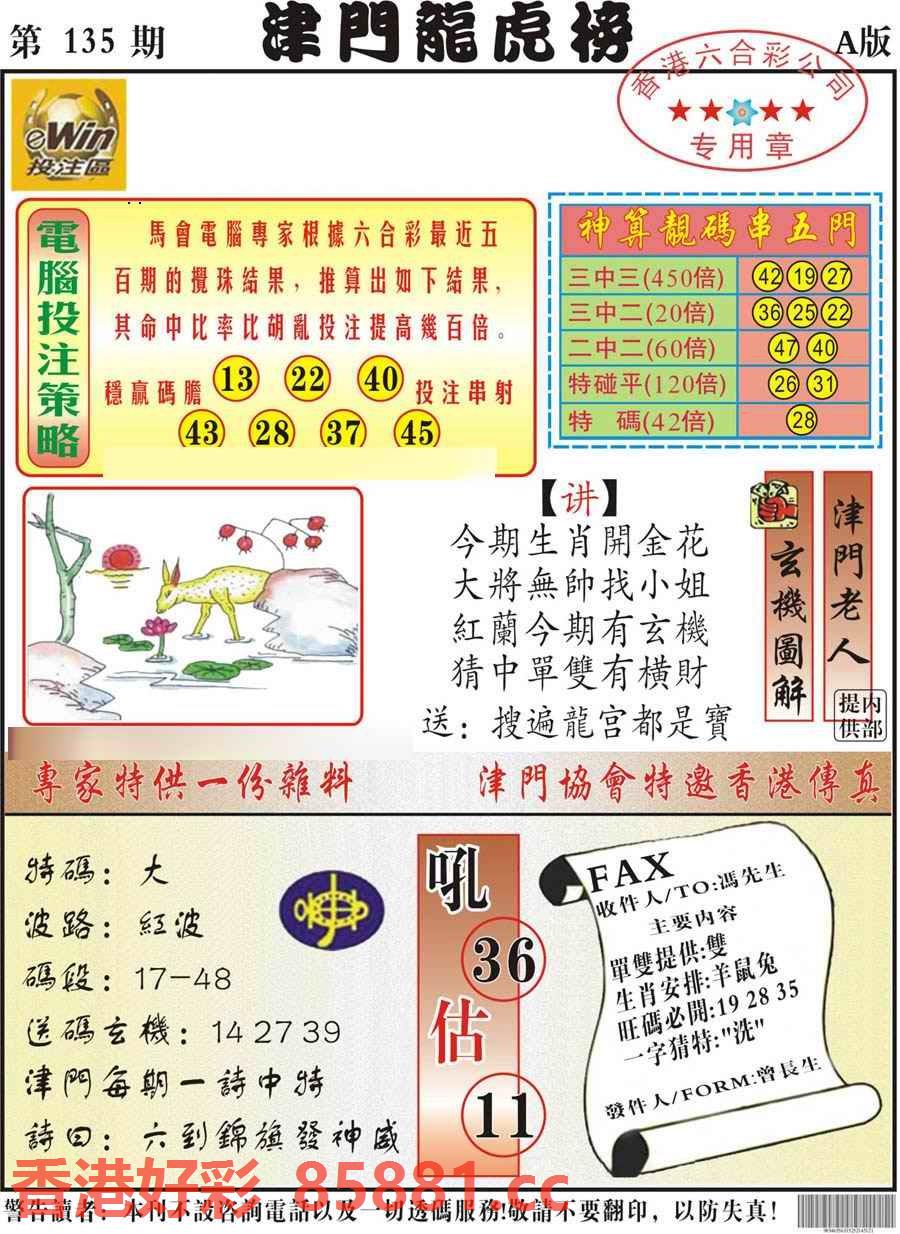 第 135 期
津門龍虎榜
A版
香港六合彩公司
专用章
eWin
投注區
電腦投注策略
馬會電腦專家根據六合彩最近五
百期的攪珠結果，推算出如下結果，
其命中比率比胡亂投注提高幾百倍。
穩贏碼膽 13 22 40 投注串射
43 28 37 45
神算靚碼串五門
三中三(450倍) 42 19 27
三中二(20倍) 36 25 22
二中二(60倍) 47 40
特碰平(120倍) 26 31
特 碼(42倍) 28
【讲】
今期生肖開金花
大將無帥找小姐
紅蘭今期有玄機
猜中單雙有橫財
送：搜遍龍宮都是寶
玄機圖解
津門老人
提供
内部
專家特供一份雜料
津門協會特邀香港傳真
特碼：大
波路：紅波
碼段：17-48
送碼玄機：14 27 39
津門每期一詩中特
詩曰：六到錦旗發神威
吼
36
估
11
FAX
收件人/TO:馮先生
主要内容
單雙提供:雙
生肖安排:羊鼠兔
旺碼必開:19 28 35
一字猜特:"洗"
發件人/FORM:曾長生
香港好彩 85881.cc
警告讀者：本刊不設咨詢電話以及一切透碼服務!敬請不要翻印，以防失真!